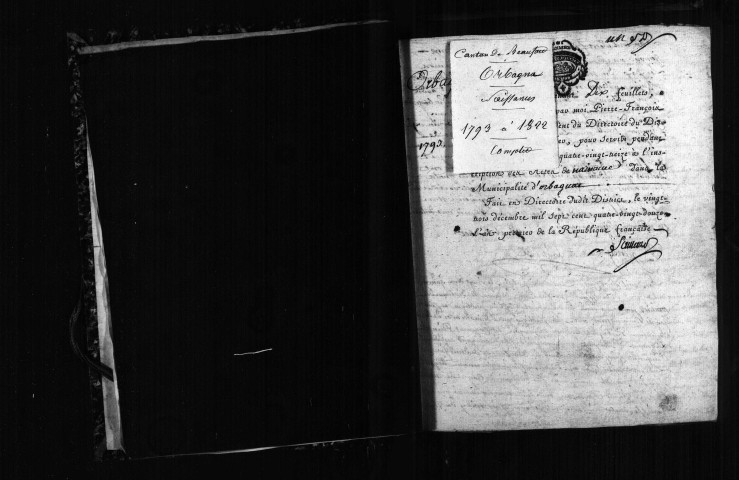 Canton de Beaufort
Orbagna
Naissances
1793 à 1822
Complet
Orbag
1793.
Dix feuillets,
par moi Pierre-François
ent du Directoire du Dis
pour servir pendant
quatre-vingt-treize à l'ins
criptions des Actes de naissance dans la
Municipalité d'orbagna
Fait en Directoire dudit District, le vingt-
trois décembre mil sept cent quatre-vingt-douze
L'an premier de la République françaises